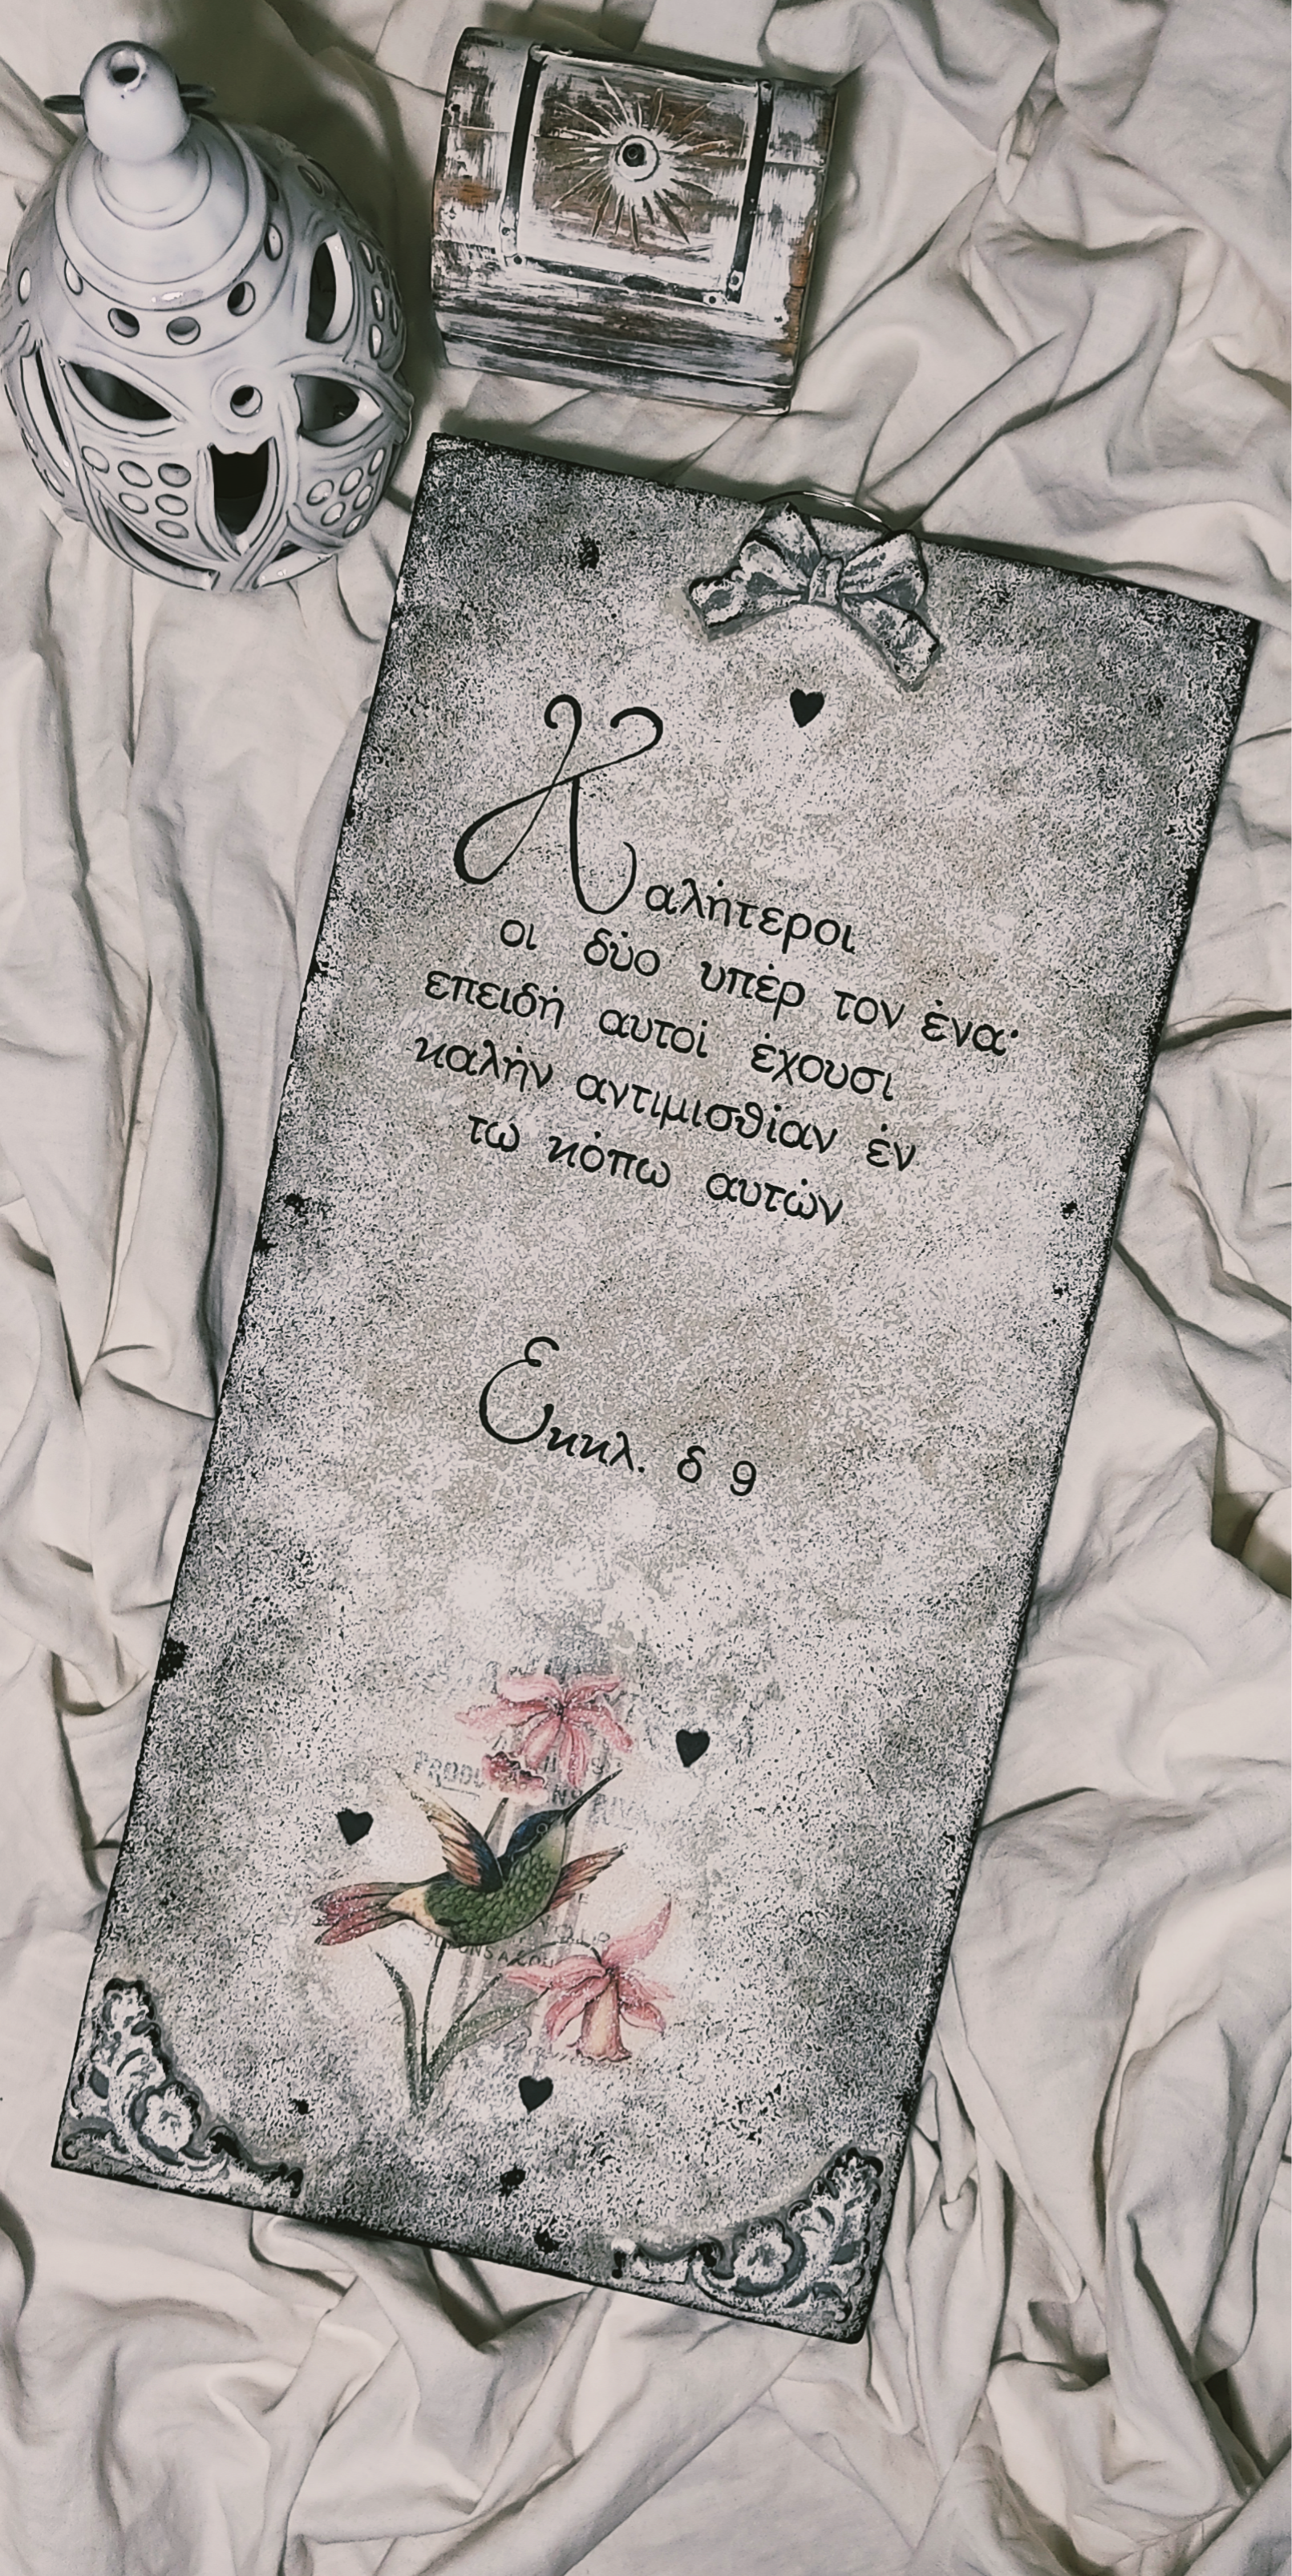 Καλήτεροι
οι δύο υπέρ τον ένα·
επειδή αυτοί έχουσι
καλήν αντιμισθίαν έν
τω κόπω αυτών
Εκκλ. δ 9